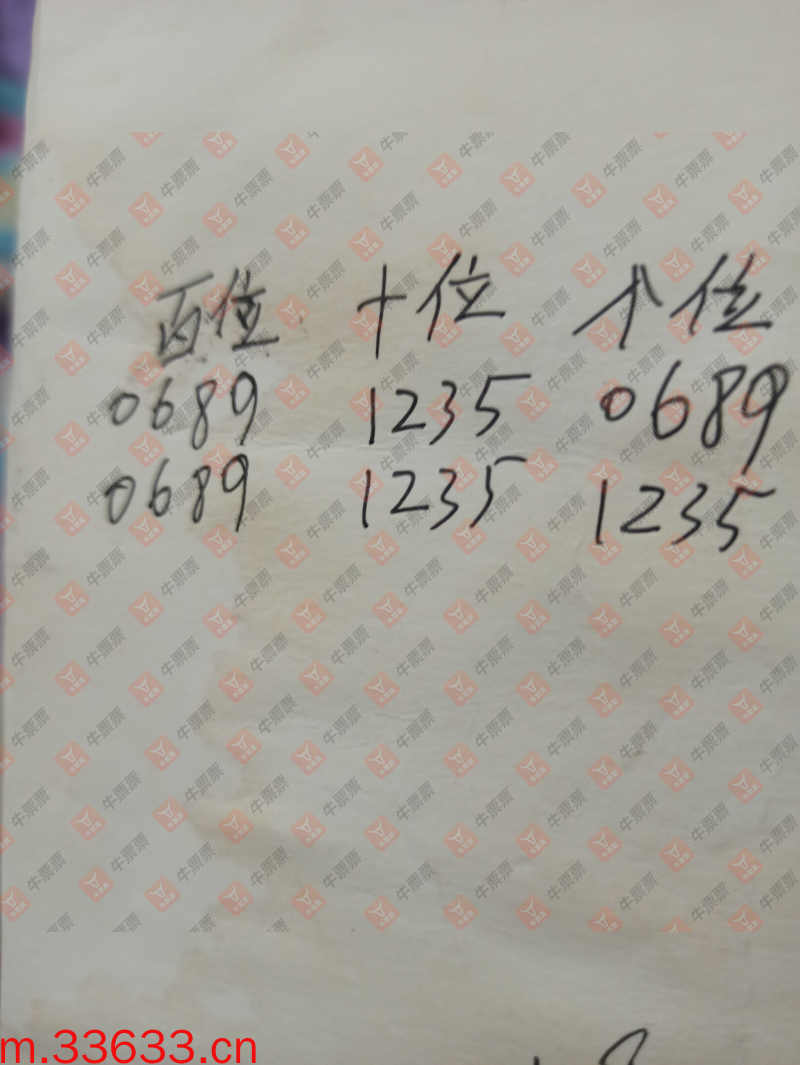 百位 十位 个位
0689 1235 0689
0689 1235 1235
牛票票
m.33633.cn